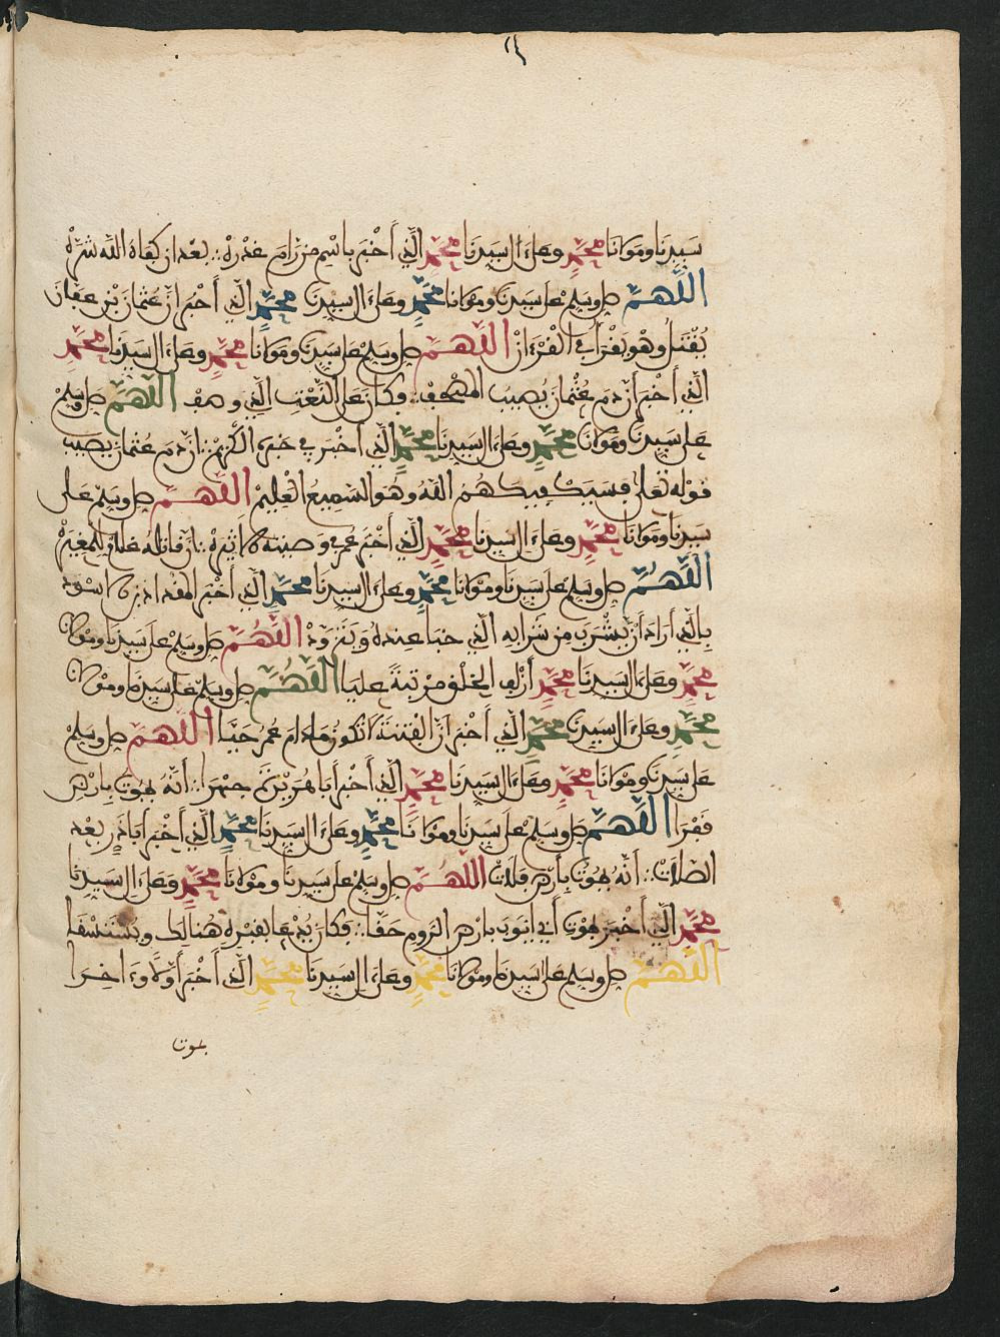 سيدنا ومولانا محمد وعلى ال سيدنا محمد الذي أخبر باسم من رام غدره بعد ان كفاه الله شره
اللهم صل وسلم على سيدنا ومولانا محمد وعلى ال سيدنا محمد الذي أخبر أن عثمان بن عفان
يقتل وهو يقرأ في القرءان اللهم صل وسلم على سيدنا ومولانا محمد وعلى ال سيدنا محمد
الذي أخبر أن دم عثمان يصيب المصحف فكان على النعت الذي وصف اللهم صل وسلم
على سيدنا ومولانا محمد وعلى ال سيدنا محمد الذي أخبر في خبره ان دم عثمان يصيب
قوله تعلى فسيكفيكهم الله وهو السميع العليم اللهم صل وسلم على
سيدنا ومولانا محمد وعلى ال سيدنا محمد الذي أخبر عمر بأن قاتله غلام المغيرة
اللهم صل وسلم على سيدنا ومولانا محمد وعلى ال سيدنا محمد الذي أخبر المقداد بن الاسود
بالذي أراد أن يشرب من شرابه الذي خبأ عنده اللهم صل وسلم على سيدنا ومولانا
محمد وعلى ال سيدنا محمد أزلف الخلق مرتبة عليا اللهم صل وسلم على سيدنا ومولانا
محمد وعلى ال سيدنا محمد الذي أخبر أن الفتنة لا تكون ما دام عمر حيا اللهم صل وسلم
على سيدنا ومولانا محمد وعلى ال سيدنا محمد الذي أخبر أبا هريرة جهرا أنه يموت بارض
فقرا اللهم صل وسلم على سيدنا ومولانا محمد وعلى ال سيدنا محمد الذي أخبر أبا ذر بعد
الصلات أنه يموت بأرض فلات اللهم صل وسلم على سيدنا ومولانا محمد وعلى ال سيدنا
محمد الذي أخبر بموت أبي ايوب بارض الروم حقا فكان يدعا بقبره هنالك ويستسقا
اللهم صل وسلم على سيدنا ومولانا محمد وعلى ال سيدنا محمد الذي أخبر أولا وءاخرا
بموت